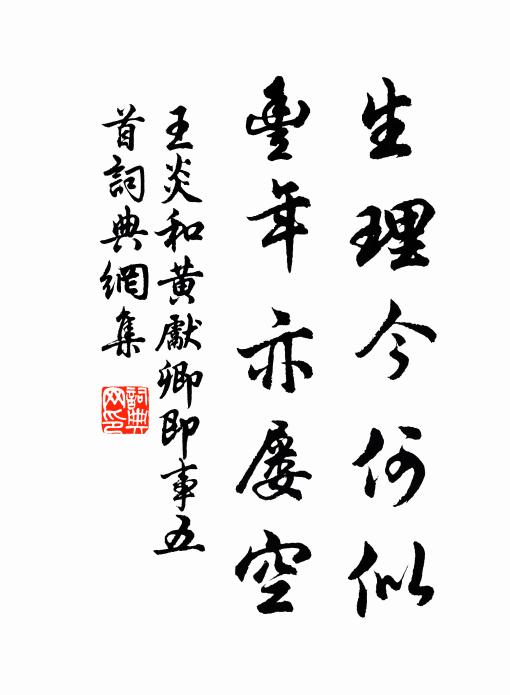 生理今何似
豊年亦屡空
王炎和黄獻卿即事五
首詞典網集
詞典
网印